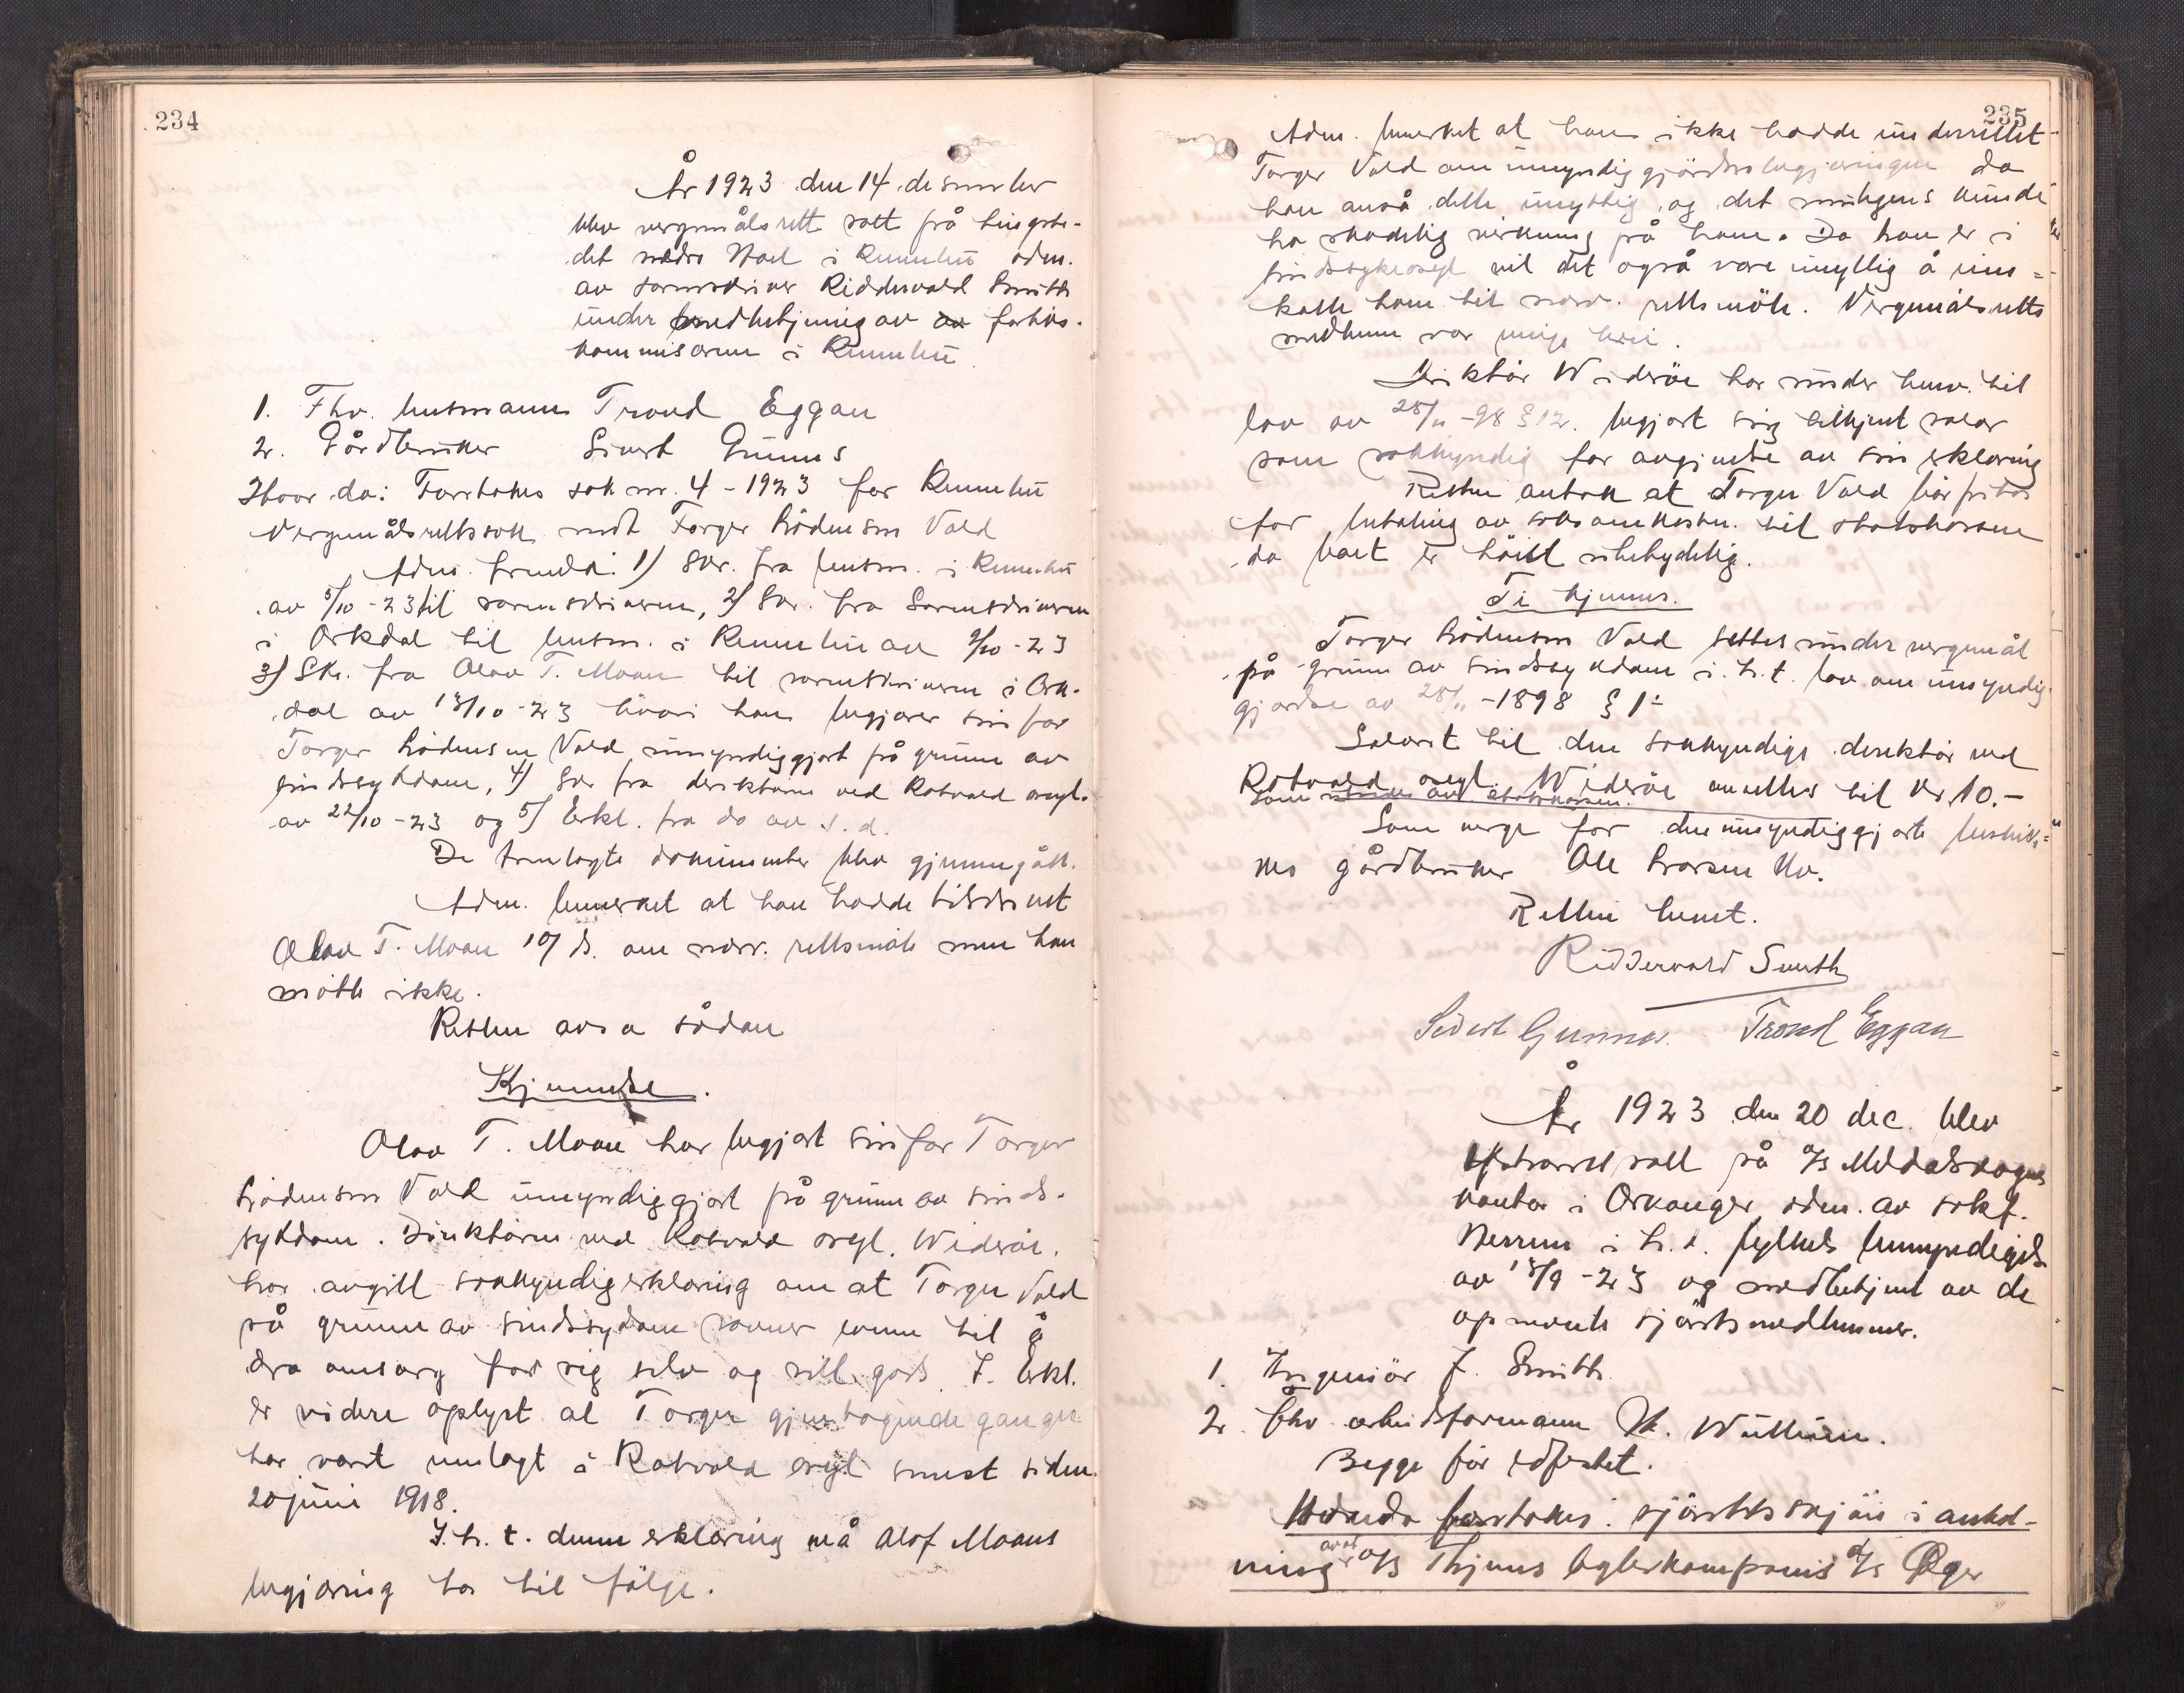 234
År 1923 den 14 desember
blev vergemålsrett satt på tingste-
det nedre Stad i Rennebu adm.
av sorenskriver Ridderwold Smith
under medbetjening av av forliks-
kommisærene i Rennebu
1. Fhv. lensmann Trond Eggan
2. Gårdbruker Sivert Gunnes
Hvor da: Foretokes sak nr. 4 - 1923 for Rennebu
Vergemålsrettssak mot Torger Hådensen Vold
Adm. fremla: 1) Skr. fra lensm. i Rennebu
av 5/10 - 23 til sorenskriveren, 2) Skr. fra Sorenskriveren
i Orkdal til lensm. i Rennebu av 9/10 - 23
3) Skr. fra Olav T. Moan til sorenskriveren i Ork-
dal av 18/10 - 23 hvori han begjærer sin far
Torger Hådensen Vold umyndiggjort på grunn av
sindssykdom, 4) Skr fra direktøren ved Rotvold asyl.
av 22/10 - 23 og 5) Erkl. fra do av s. d.
De fremlagte dokumenter blev gjennemgått.
Adm. bemerket at han hadde tilskrevet
Olav T. Moan 10/ ds. om nærv. rettsmøte men han
møtte ikke.
Retten avsa sådan
Kjennelse.
Olav T. Moan har begjært sin far Torger
Hådensen Vold umyndiggjort på grunn av sinds-
sykdom. Direktøren ved Rotvold asyl. Widerøe.
har avgitt sakkyndigerklæring om at Torger Vold
på grunn av sindssydom savner evne til å
dra omsorg for sig selv og sitt gods. I. Erkl.
er videre oplyst at Torger gjentagende ganger
har vært innlagt i Rotvold asyl senest siden
20 juni 1918.
I. h. t. denne erklæring må Olof Moans
begjæring ha til følge.
235
Adm. bemerket at han ikke hadde underrettet
Torger Vold om umyndiggjørelsesbegjæringen da
han anså dette unyttig og det muligens kunde
ha skadelig virkning på ham. Da han er i
sindssykeasyl vil det også være unyttig å inn-
kalle ham til nærv. rettsmøte. Vergemålsretts
medlemmer var enige heri.
Direktør Widerøe har under henv. til
lov av 28/11 -98 § 12. begjært sig tilkjent salær
som sakkyndig for avgivelse av sin erklæring
Retten antok at Torger Vold bør fritas
for betaling av saksomkostn. til statskassen
da boet er høist ubetydelig.
Ti kjennes.
Torger Hådensen Vold settes under vergemål
på grunn av sindssykdom i. h. t. lov om umyndig-
gjørelse av 28/11 - 1898 § 1-
Salæret til den sakkyndige direktør ved
Rotvold asyl. Widerøe ansettes til kr. 10.-
som utredes av statskassen.
Som verge for den umyndiggjorte beskik-
kes gårdbruker Ole Larsen Uv.
Retten hevet.
Ridderwold Smith
Sivert Gunnes. Trond Eggan
År 1923 den 20 dec. blev
sjøforretrett satt på A/S Meldalskogens
kontor i Orkanger adm. av sakf.
Nerrem i h. t. fylkets bemyndigels.
av 18/9 - 23 og medbetjent av de
opnevnte sjørettsmedlemmer.
1. Ingeniør J. Smith
2. Fhv arbeidsformann M. Wuttudn.
Begge før edfestet.
Hvorda foretokes: sjørettsskjøn i anled-
ning av at A/S Thjems Oplerkompanis D/S Øger